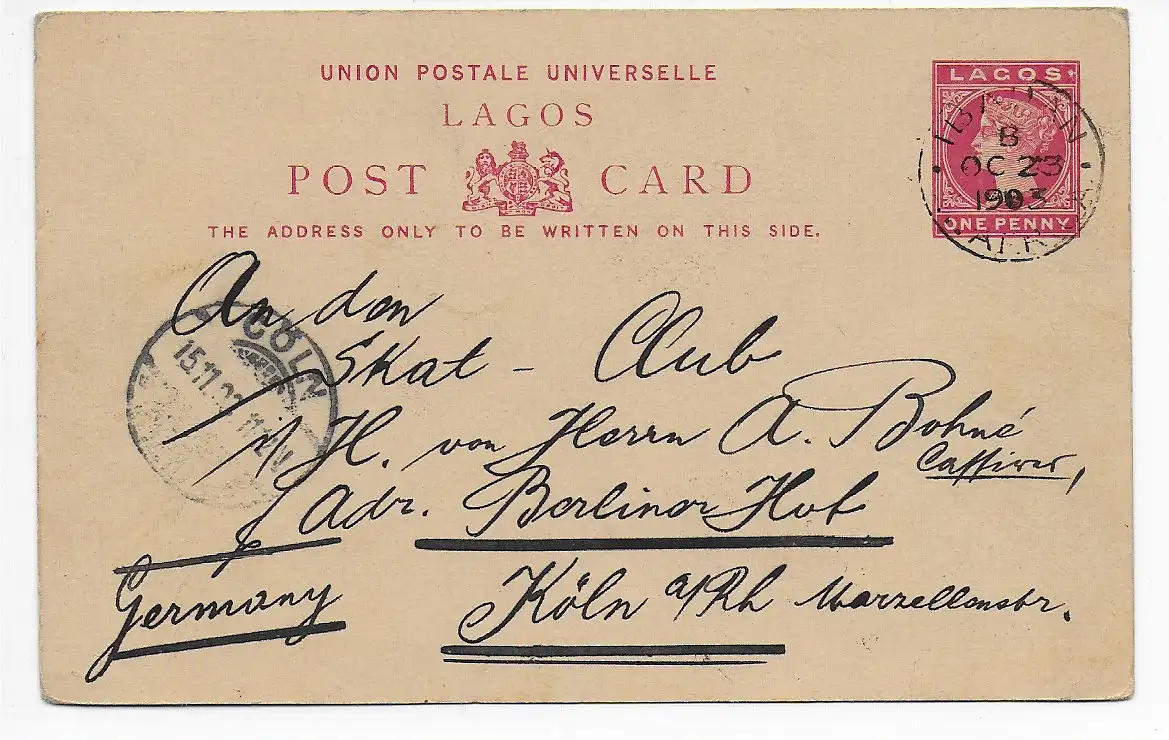 UNION POSTALE UNIVERSELLE
LAGOS
POST CARD
THE ADDRESS ONLY TO BE WRITTEN ON THIS SIDE.
LAGOS
ONE PENNY
IBADAN
B
OC 23
1903
W. AFRICA
CÖLN
15.11.
An den
Skat - Club
p/A H. von Herrn A. Bohné
Cassirer,
Adr. Berliner Hof
Germany
Köln a/Rh Marzellenstr.